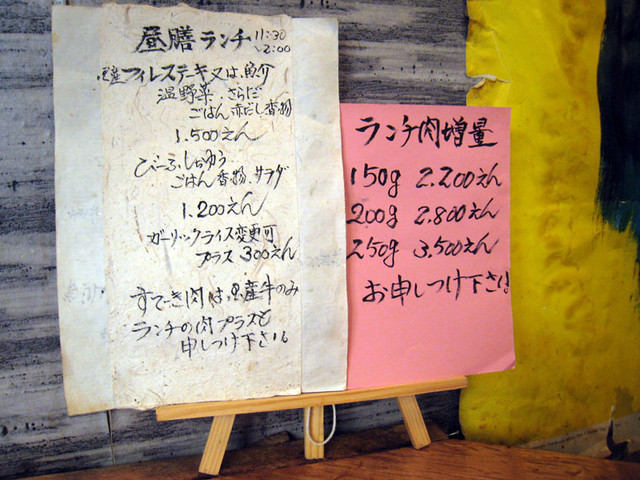 昼膳ランチ 11:30
~2:00
国産フィレステーキ又は魚介
温野菜 さらだ
ごはん 赤だし 香物
1.500えん
びーふしちゅう
ごはん 香物、サラダ
1.200えん
ガーリックライス変更可
プラス 300えん
すてーき肉は国産牛のみ
ランチの肉プラスと
申しつけ下さい
ランチ肉増量
150g 2.200えん
200g 2.800えん
250g 3.500えん
お申しつけ下さい